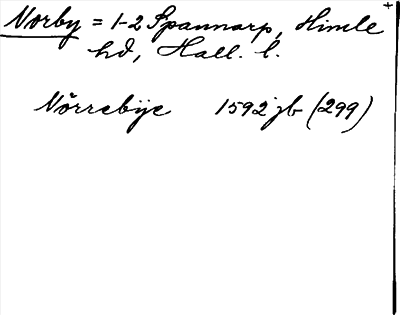 Norby = 1-2 Spannarp, Himle
hd, Hall. l.
Nörrebÿe 1592 jb (299)